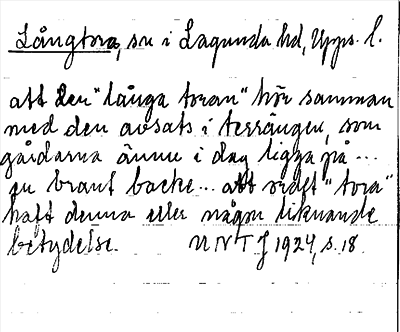 Långtora, sn i Lagunda hd, Upps. l.
att den "långa toran" hör samman
med den avsats i terrängen, som
gårdarna ännu i dag ligga på ...
en brant backe ... att ordet "tora"
haft denna eller någon liknande
betydelse. UNT J 1924, s. 18.